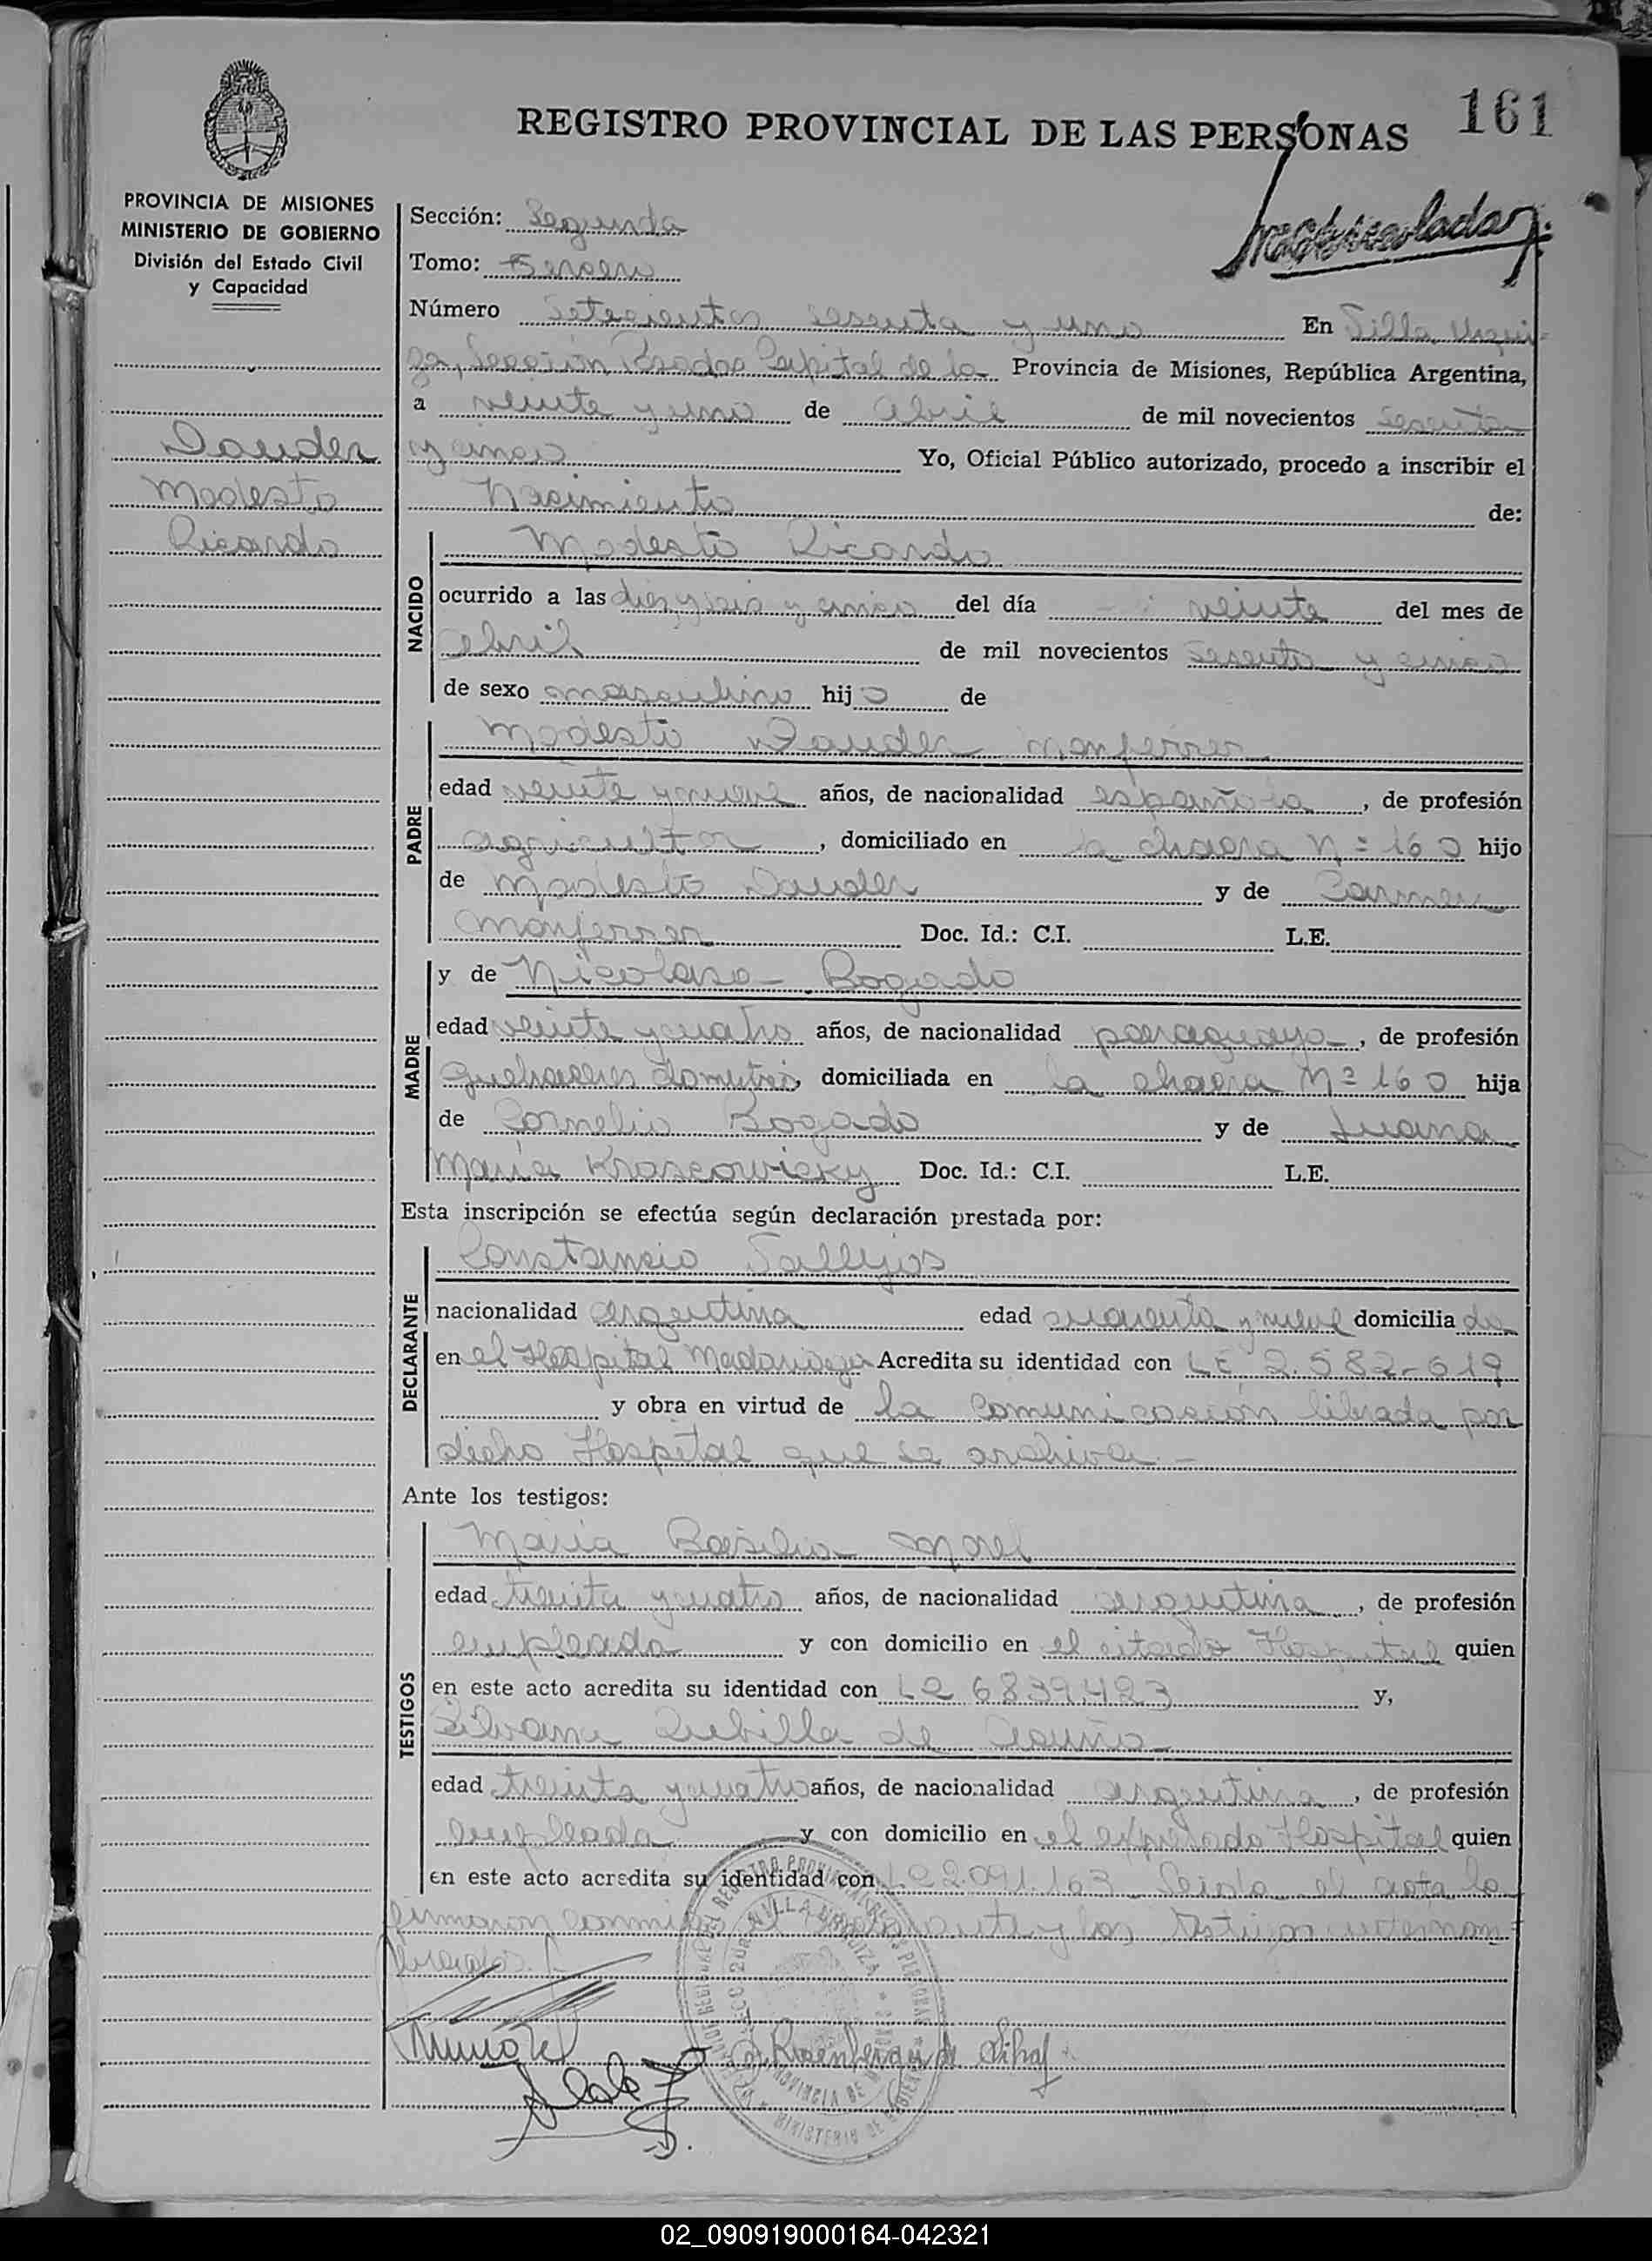 REGISTRO PROVINCIAL DE LAS PERSONAS
161
PROVINCIA DE MISIONES
MINISTERIO DE GOBIERNO
División del Estado Civil
y Capacidad
Matriculado
Dauder
Modesto
Ricardo
Sección: Segunda
Tomo: Tercero
Número Setecientos sesenta y uno En Villa Urqui-
za, Sección Posadas Capital de la Provincia de Misiones, República Argentina,
a veinte y uno de abril de mil novecientos sesenta
y cinco Yo, Oficial Público autorizado, procedo a inscribir el
Nacimiento de:
NACIDO
Modesto Ricardo
ocurrido a las diez y seis y cinco del día veinte del mes de
abril de mil novecientos sesenta y cinco
de sexo masculino hijo de
PADRE
Modesto Dauder Monferrer
edad veinte y nueve años, de nacionalidad española, de profesión
agricultor, domiciliado en la chacra Nº 160 hijo
de Modesto Dauder y de Carmen
Monferrer Doc. Id.: C.I. L.E.
MADRE
y de Nicolasa Bogado
edad veinte y cuatro años, de nacionalidad paraguaya, de profesión
quehaceres domésticos, domiciliada en la chacra Nº 160 hija
de Cornelio Bogado y de Juana
María Kroscowicky Doc. Id.: C.I. L.E.
Esta inscripción se efectúa según declaración prestada por:
DECLARANTE
Constancio Vallejos
nacionalidad argentina edad cuarenta y nueve domiciliado
en el Hospital Madariaga Acredita su identidad con LE 2.582-619
y obra en virtud de la comunicación librada por
dicho Hospital que se archiva-
Ante los testigos:
TESTIGOS
María Basilia Morel
edad treinta y cuatro años, de nacionalidad argentina, de profesión
empleada y con domicilio en el citado Hospital quien
en este acto acredita su identidad con LC 6839.423 y,
Silvana Cubilla de Acuña
edad treinta y cuatro años, de nacionalidad argentina, de profesión
empleada y con domicilio en el expresado Hospital quien
en este acto acredita su identidad con LC 2.091.163 Leída el acta la
firmaron conmigo el declarante y los testigos
VILLA URQUIZA
PROVINCIA DE
MINISTERIO DE
02_090919000164-042321